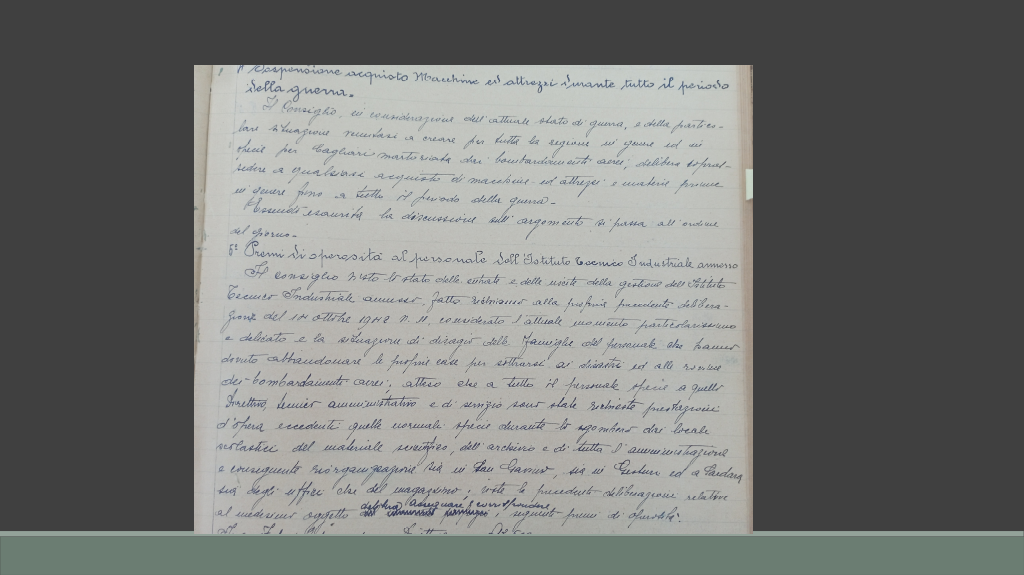 Sospensione acquisto Macchine ed attrezzi durante tutto il periodo
della guerra.
Il Consiglio, in considerazione dell'attuale stato di guerra, e della partico-
lare situazione venutasi a creare per tutta la regione in genere ed in
specie per Cagliari martoriata dai bombardamenti aerei, delibera sopras-
sedere a qualsiasi acquisto di macchine ed attrezzi e materie prime
in genere fino a tutto il periodo della guerra.
Essendo esaurita la discussione sull'argomento si passa all'ordine
del giorno.
5° Premi di operosità al personale dell'Istituto Tecnico Industriale annesso
Il consiglio visto lo stato delle entrate e delle uscite della gestione dell'Istituto
Tecnico Industriale annesso, fatto richiamo alla propria precedente delibera-
zione del ottobre 1942 N. 11, considerato l'attuale momento particolarissimo
e delicato e la situazione di disagio delle famiglie del personale che hanno
dovuto abbandonare le proprie case per sottrarsi ai disastri ed alle rovine
dei bombardamenti aerei; atteso che a tutto il personale specie a quello
Direttivo, tecnico amministrativo e di servizio sono state richieste prestazioni
d'opera eccedenti quelle normali specie durante lo sgombero dai locali
scolastici del materiale scientifico, dell'archivio e di tutta l'amministrazione
e conseguente riorganizzazione sia in San Gavino, sia in Gesturi ed a
sia degli uffici che del magazzino; viste le precedenti deliberazioni relative
al medesimo oggetto delibera assegnare i corrispondenti seguenti premi di operosità.